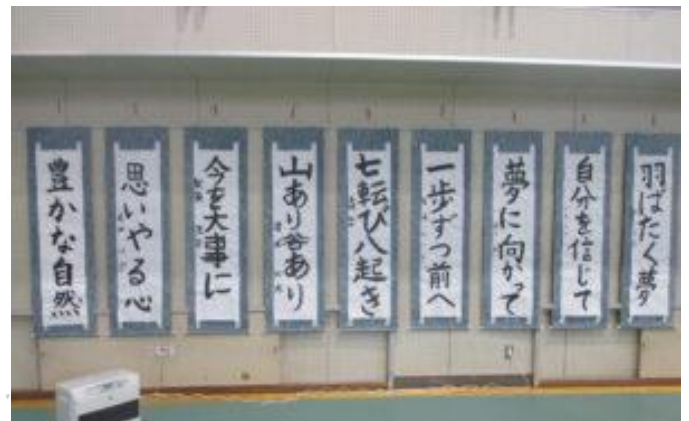 羽ばたく夢
自分を信じて
夢に向かって
一歩ずつ前へ
七転び八起き
山あり谷あり
今を大事に
思いやる心
豊かな自然